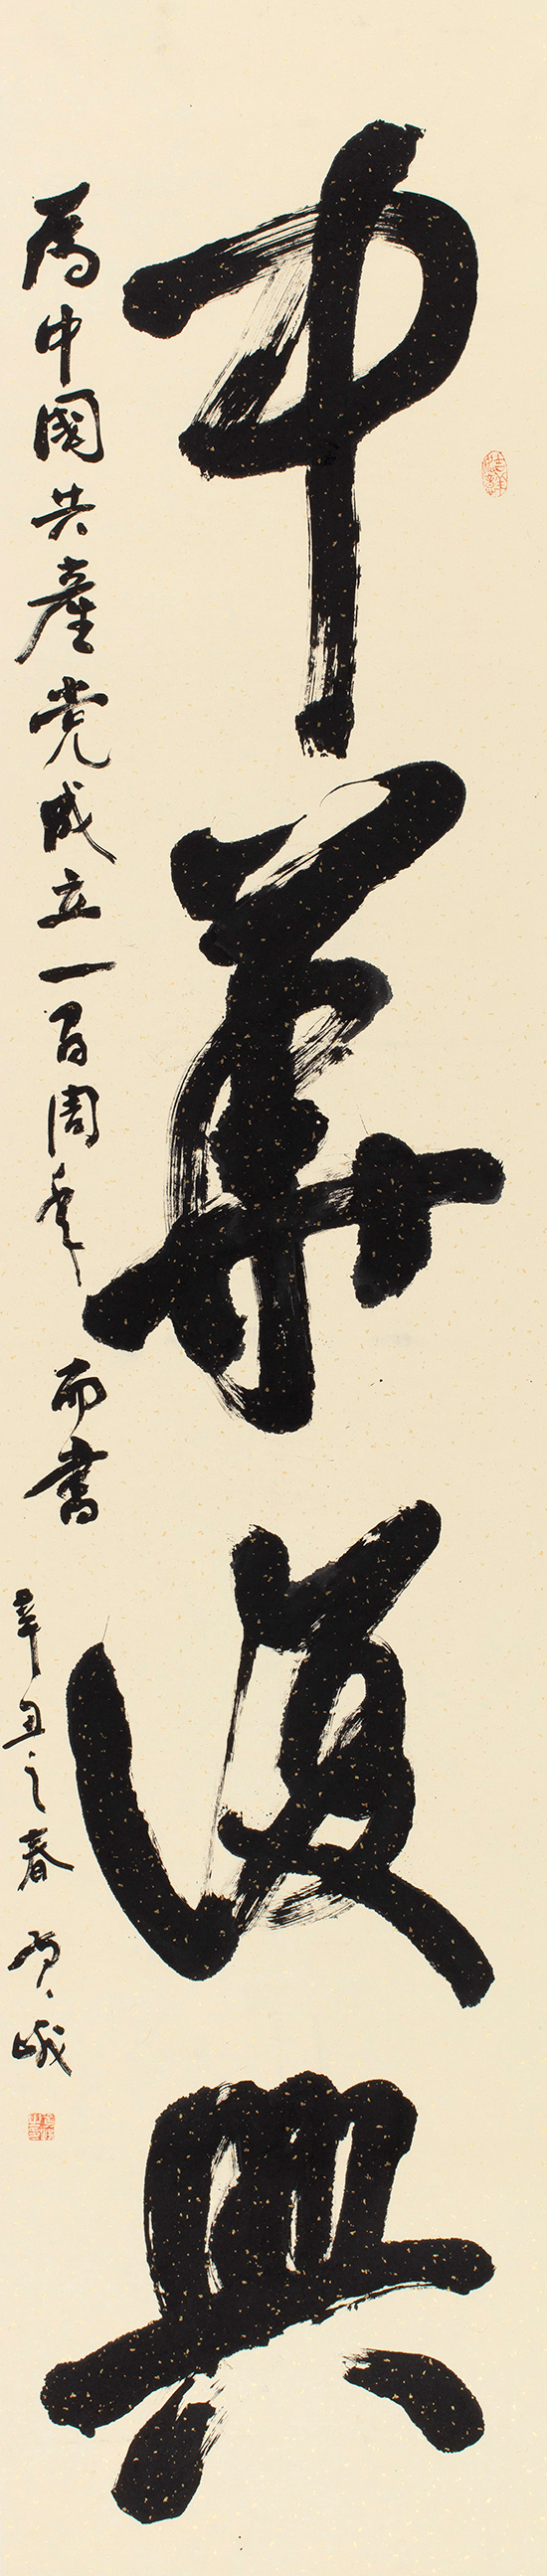 中華復興
為中國共產党成立一百周年 而書
辛丑之春 賀峨